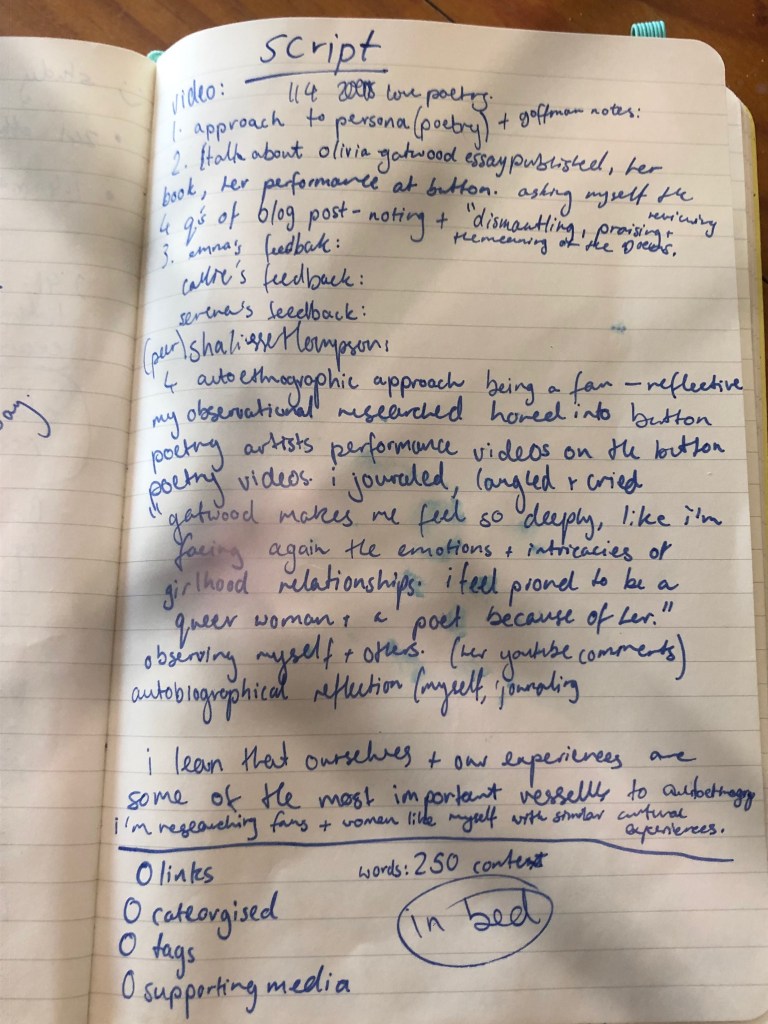 script
video: 114 love poetry.
1. approach to persona (poetry) + goffman notes:
2. talk about olivia gatwood essay published, her
book, her performance at button. asking myself the
4 q's of blog post - noting + "dismantling, praising + reviewing
the meaning of the poems.
3. emma's feedbak:
callie's feedback:
serena's feedback:
(peer) shalisse thompson:
4 autoethnographic approach being a fan - reflective
my observational researched honed into button
poetry artists performance videos on the button
poetry videos. i jouraled, laughed + cried
"gatwood makes me feel so deeply, like i'm
facing again the emotions + intricacies of
girlhood relationships. i feel proud to be a
queer woman + a poet because of her."
observing myself + others. (her youtube comments)
autobiographical reflection (myself, journaling
i learn that ourselves + our experiences are
some of the most important vessells to
i'm researching fans + women like myself with similar cultural
experiences.
O links
words: 250 context
O cateorgised
in bed
O tags
O supporting media